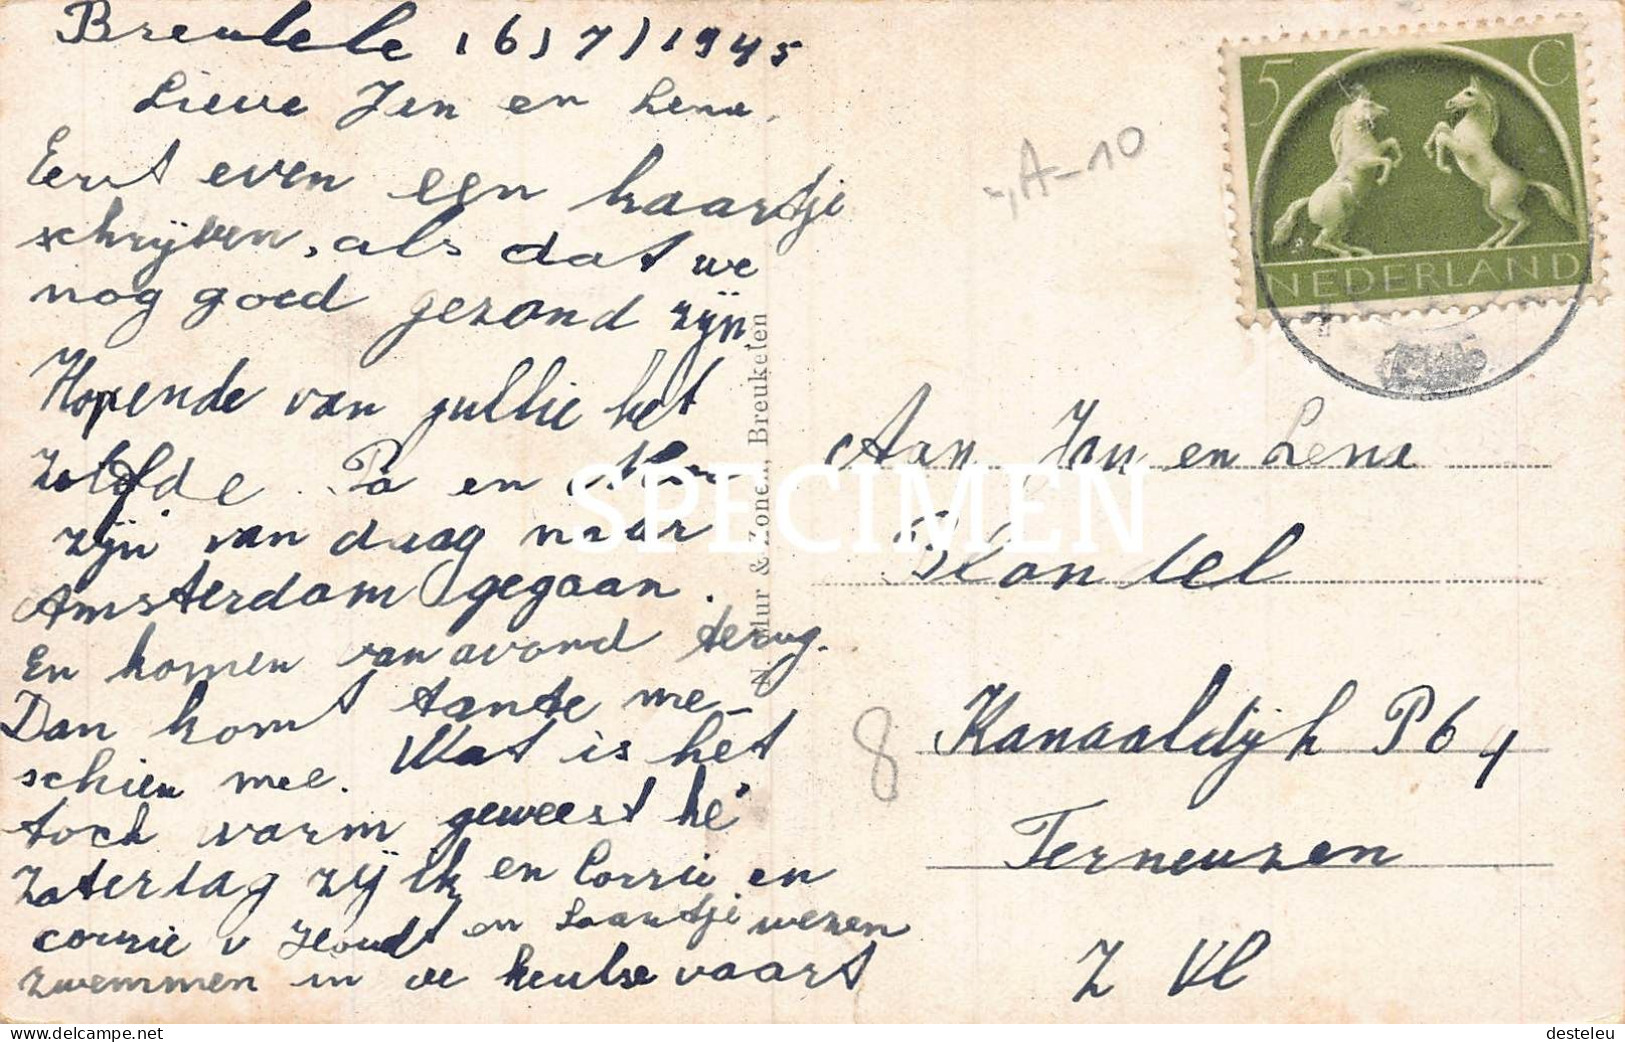 Breukele 16/7/1945
Lieve Jan en Lena.
Eerst even een kaartje
schrijven, als dat we
nog goed gezond zijn
Hopende van jullie het
zelfde. Pa en Moe
zijn van daag naar
Amsterdam gegaan.
En komen van avond terug.
Dan komt tante me-
schien mee. Wat is het
toch warm geweest hé
Zaterdag zij ik en Corrie en
corrie v en Laantje wezen
zwemmen in de keulse vaart
N. Mur & Zonen, Breukelen
-,A-10
5 C
NEDERLAND
Aan Jan en Lena
Kanaaldijk P64
8
Terneuzen
Z Vl
SPECIMEN
delcampe.net
desteleu